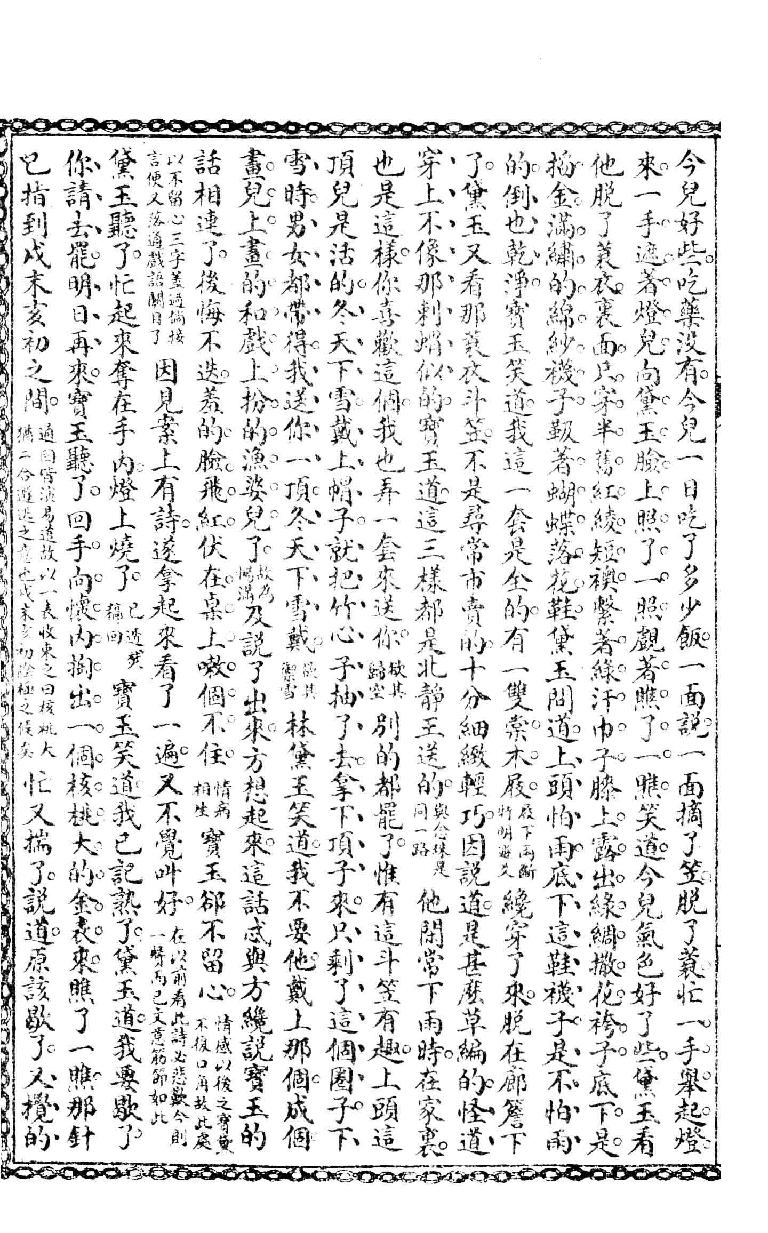 今兒好些吃藥沒有今兒一日吃了多少飯一面說一面摘了笠脫了蓑忙一手舉起燈
來一手遮著燈兒向黛玉臉上照了一照覷著瞧了一瞧笑道今兒氣色好了些黛玉看
他脫了蓑衣裏面只穿半舊紅綾短襖繫著綠汗巾子膝上露出綠綢撒花袴子底下是
搯金滿繡的綿紗襪子靸著蝴蝶落花鞋黛玉問道上頭怕雨底下這鞋襪子是不怕雨
的倒也乾淨寶玉笑道我這一套是全的有一雙棠木屐 纔穿了來脫在廊簷下
了黛玉又看那蓑衣斗笠不是尋常市賣的十分細緻輕巧因說道是甚麼草編的怪道
穿上不像那刺蝟似的寶玉道這三樣都是北靜王送的 他閑常下雨時在家裏
也是這樣你喜歡這個我也弄一套來送你 別的都罷了惟有這斗笠有趣上頭這
頂兒是活的冬天下雪戴上帽子就把竹心子抽了去拿下頂子來只剩了這個圈子下
雪時男女都帶得我送你一頂冬天下雪戴 林黛玉笑道我不要他戴上那個成個
畫兒上畫的和戲上扮的漁婆兒了 及說了出來方想起來這話忒與方纔說寶玉的
話相連了後悔不迭羞的臉飛紅伏在桌上嗽個不住情病相生寶玉卻不留心情
以不留心三字蓋過 因見案上有詩遂拿起來看了一遍又不覺叫好在以前看此詩必悲歎今則
黛玉聽了忙起來奪在手內燈上燒了 寶玉笑道我已記熟了黛玉道我要歇了
你請去罷明日再來寶玉聽了回手向懷內掏出一個核桃大的金表來瞧了一瞧那針
已指到戌末亥初之間 忙又揣了說道原該歇了又攪的